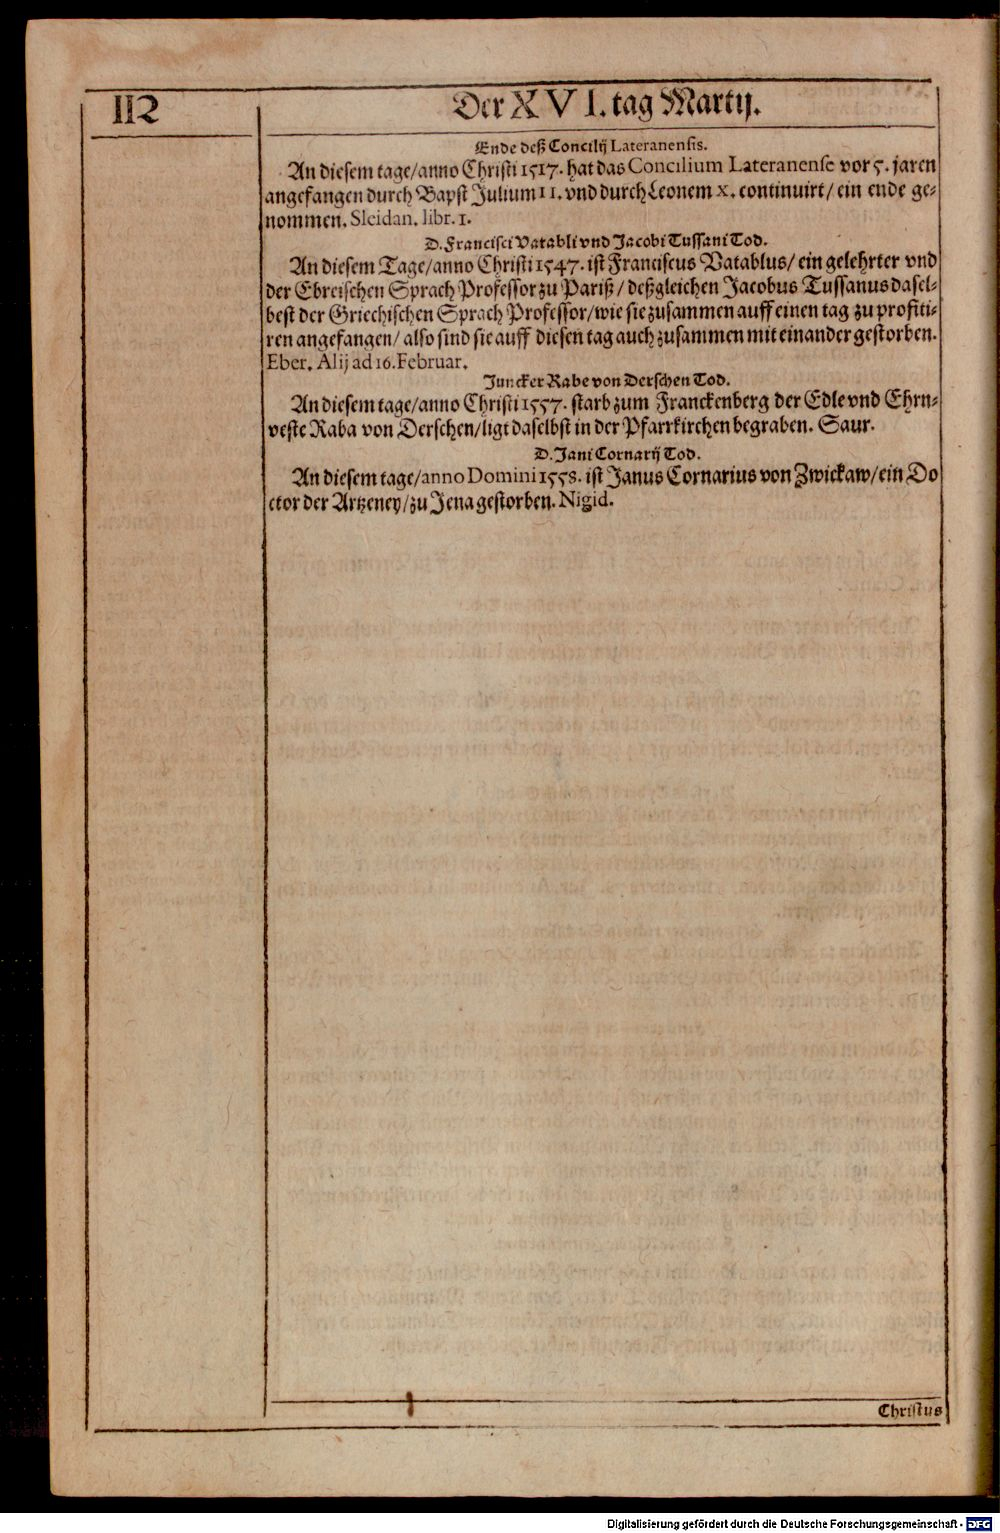 112
Der XVI. tag Martij.
Ende deß Concilij Lateranensis.
An diesem tage/anno Christi 1517. hat das Concilium Lateranense vor 5. jaren
angefangen durch Bapst Julium II. vnd durch Leonem X. continuirt/ ein ende ge-
nommen. Sleidan. libr. 1.
D. Francisci Vatabli vnd Jacobi Tussani Tod.
An diesem Tage/anno Christi 1547. ist Franciscus Vatablus/ ein gelehrter vnd
der Ebreischen Sprach Professor zu Pariß/ deßgleichen Jacobus Tussanus dasel-
best der Griechischen Sprach Professor/wie sie zusammen auff einen tag zu profiti-
ren angefangen/ also sind sie auff diesen tag auch zusammen mit einander gestorben.
Eber. Alij ad 16. Februar.
Juncker Rabe von Derschen Tod.
An diesem tage/anno Christi 1557. starb zum Franckenberg der Edle vnd Ehrn-
veste Raba von Derschen/ligt daselbst in der Pfarrkirchen begraben. Saur.
D. Jani Cornarij Tod.
An diesem tage/anno Domini 1558. ist Janus Cornarius von Zwickaw/ein Do
ctor der Artzeney/zu Jena gestorben. Nigid.
Christus
Digitalisierung gefördert durch die Deutsche Forschungsgemeinschaft - DFG